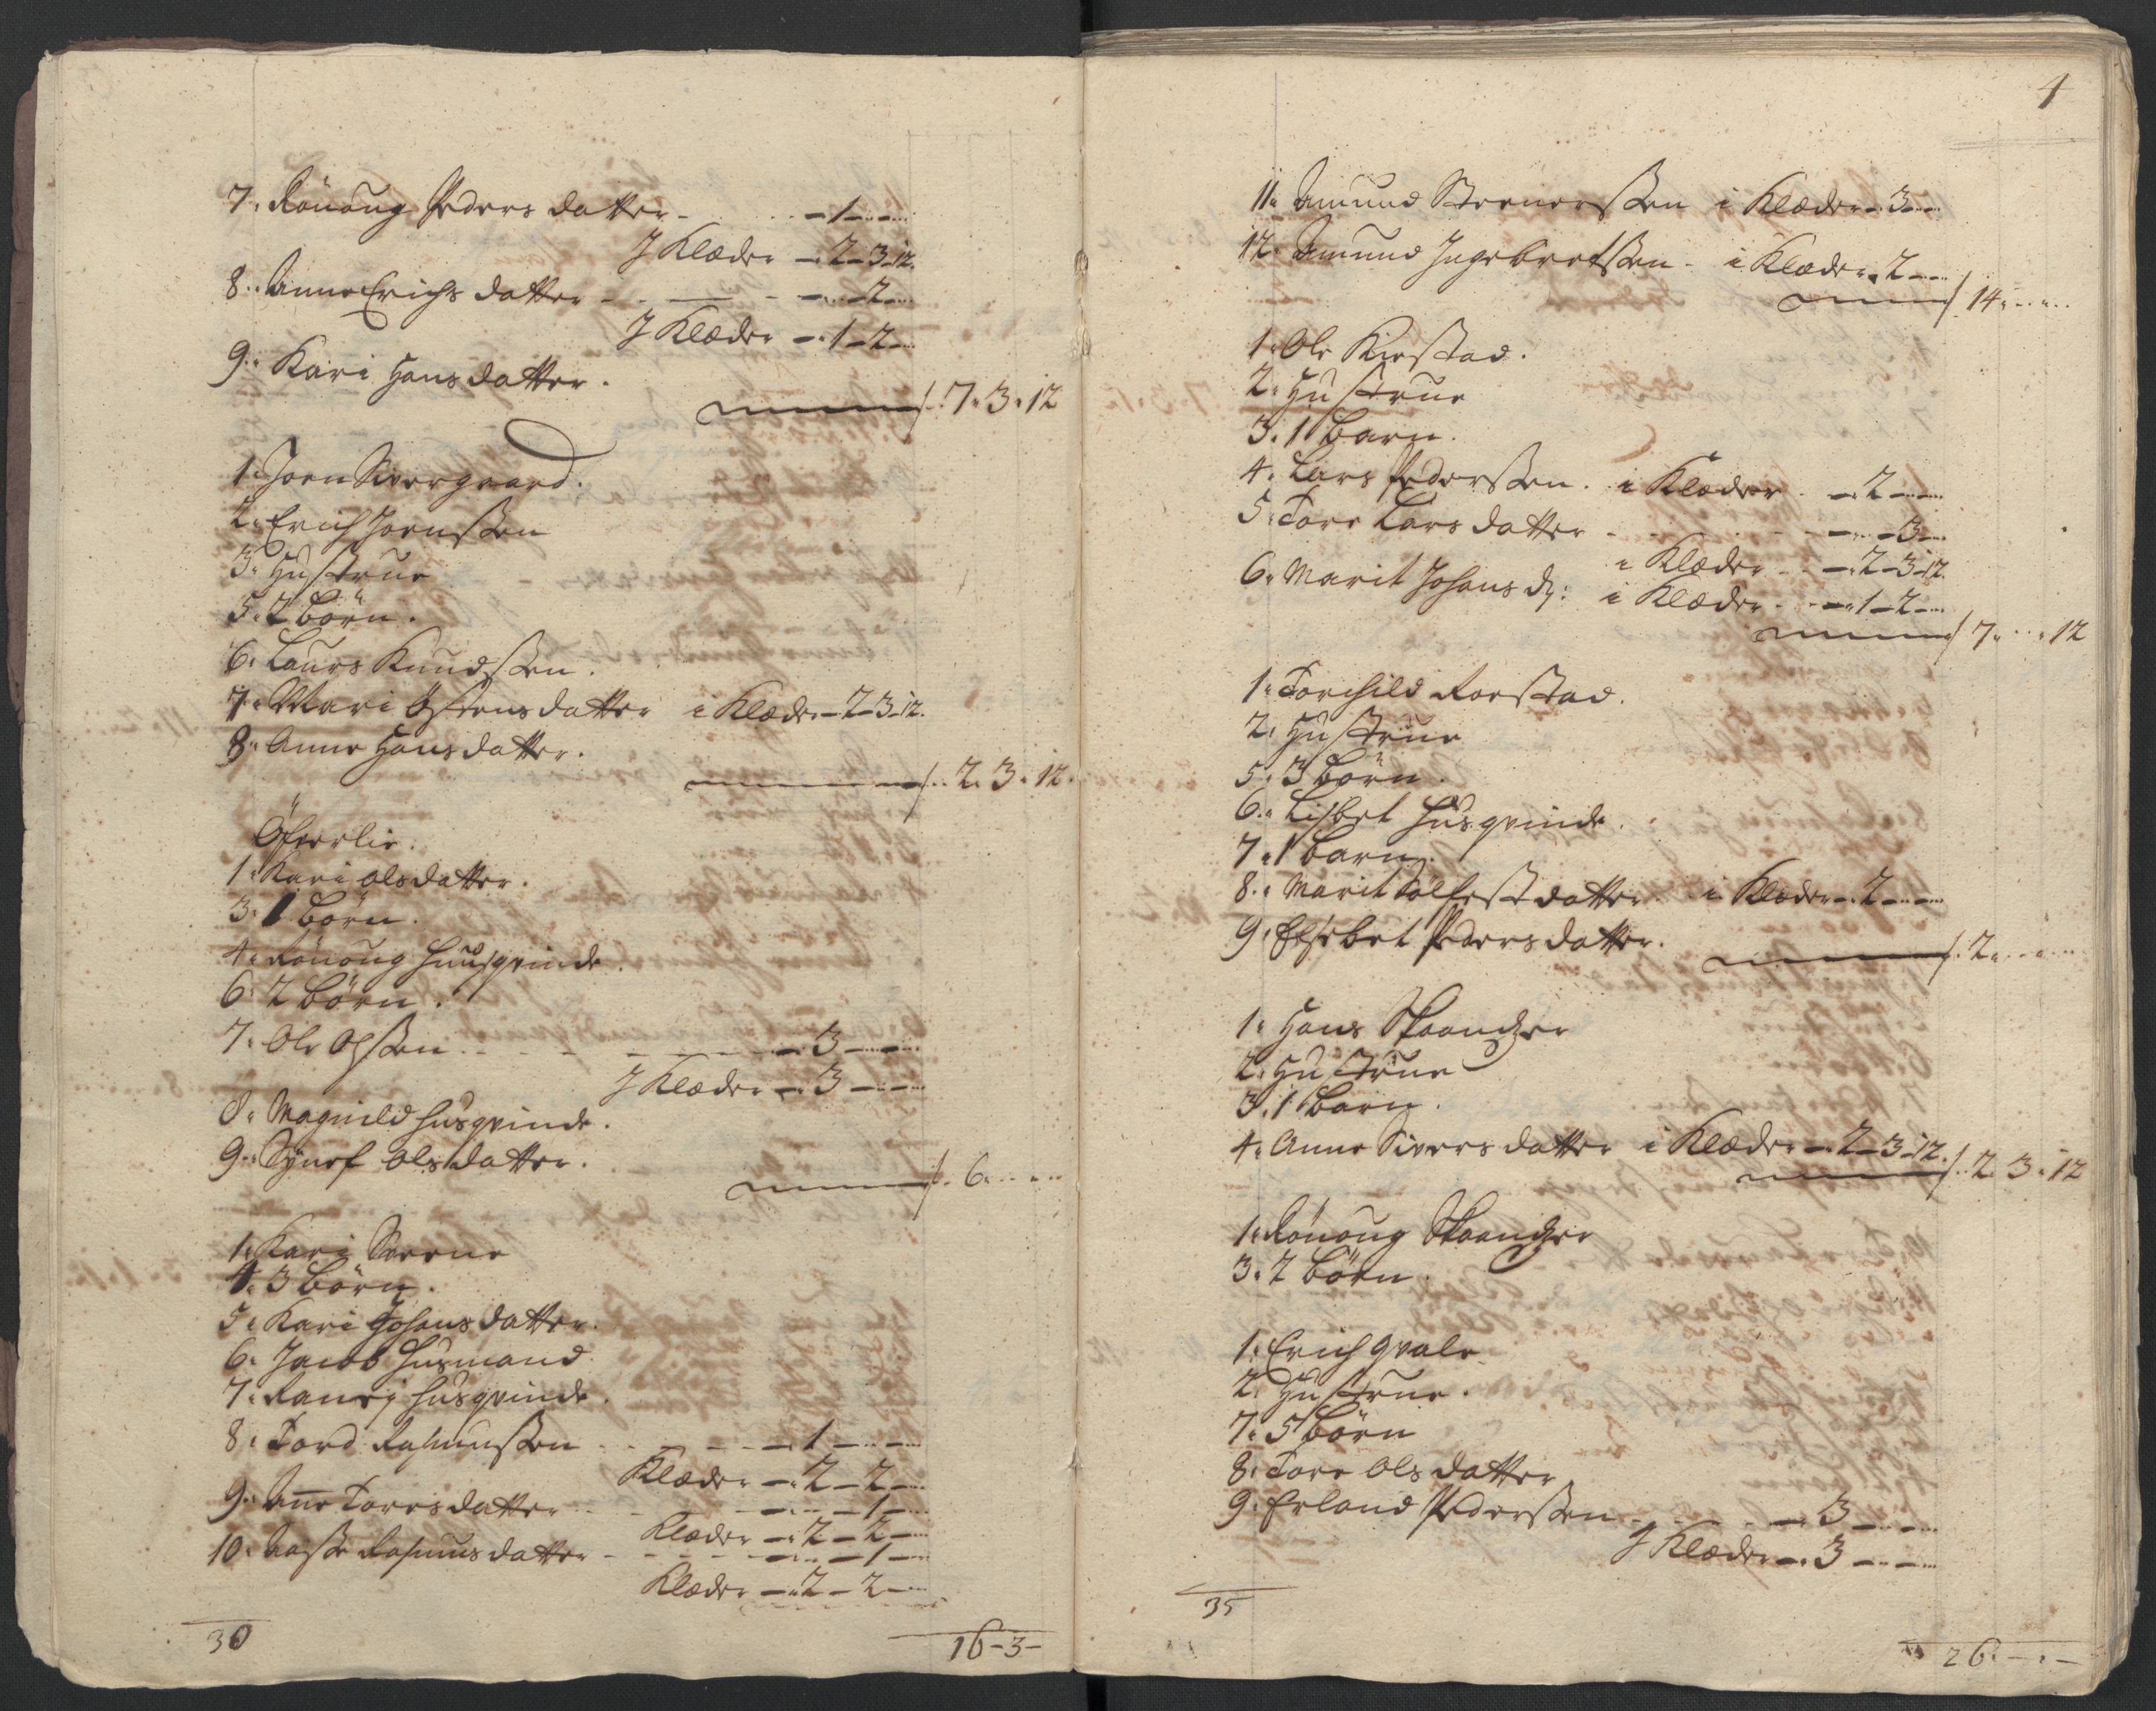 7. Rönoug Peders datter - 1
J Klæder - 2 - 3 - 12.
8. Anne Erichs datter - 2
J Klæder - 1 - 2
9. Kari Hans datter.
7. 3. 12
1. Joen Sivergaard.
2. Erich Joenssen
3. Hustrue
5. 2 börn.
6. Laurs Knudssen.
7. Mari Östens datter i Klæder - 2 - 3 - 12.
8. Anne Hans datter.
2. 3. 12.
Öfverlie.
1. Kari Olsdatter.
3. börn.
4. Rönoug huusqvinde.
6. 2 börn.
7. Ole Olssen - 3
J Klæder - 3
8. Magnild husqvinde.
9. Synef Olsdatter.
6
1. Kari Steene
4. 3 börn.
5. Kari Johans datter.
6. Jacob husmand
7. Ranei husqvinde.
8. Tord Rasmussen - 1
Klæder - 2 - 2
9. Ane Tores datter - 1
Klæder - 2 - 2
10. Aasse Rasmus datter - 1
Klæder - 2 - 2
30
16 - 3 -
4
11. Amund Steenerssen i Klæder - 3
12. Amund Ingebretssen - i Klæder 2
14
1. Ole Kirstad.
2. Hustrue
3. 1 barn.
4. Lars Pederssen. i Klæder - 2
5. Tore Lars datter - 3
i Klæder - 2 - 3 - 12.
6. Marit Johans dr: i Klæder - 1 - 2
7. 12
1. Torchild Rorstad.
2. Hustrue
5. 3 börn.
6. Lisbet husqvinde.
7. 1 barn.
8. Marit Solfest datter i Klæder - 2
9. Elsebet Peders datter.
2.
1. Hans Skaanzer
2. Hustrue
3. 1 barn.
4. Anne Sivers datter i Klæder - 2 - 3 - 12.
2. 3. 12
1. Rönoug Skaanzer
3. 2 börn.
1. Erich Qvale
2. Hustrue.
7. 5 börn
8. Tore Ols datter
9. Erland Pederssen - 3
J Klæder - 3
35
26. - . -